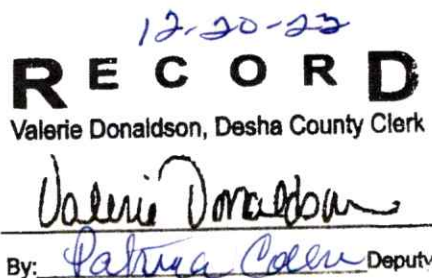 12-20-22
RECORD
Valerie Donaldson, Desha County Clerk
Valerie Donaldson
By: Patricia Deputy